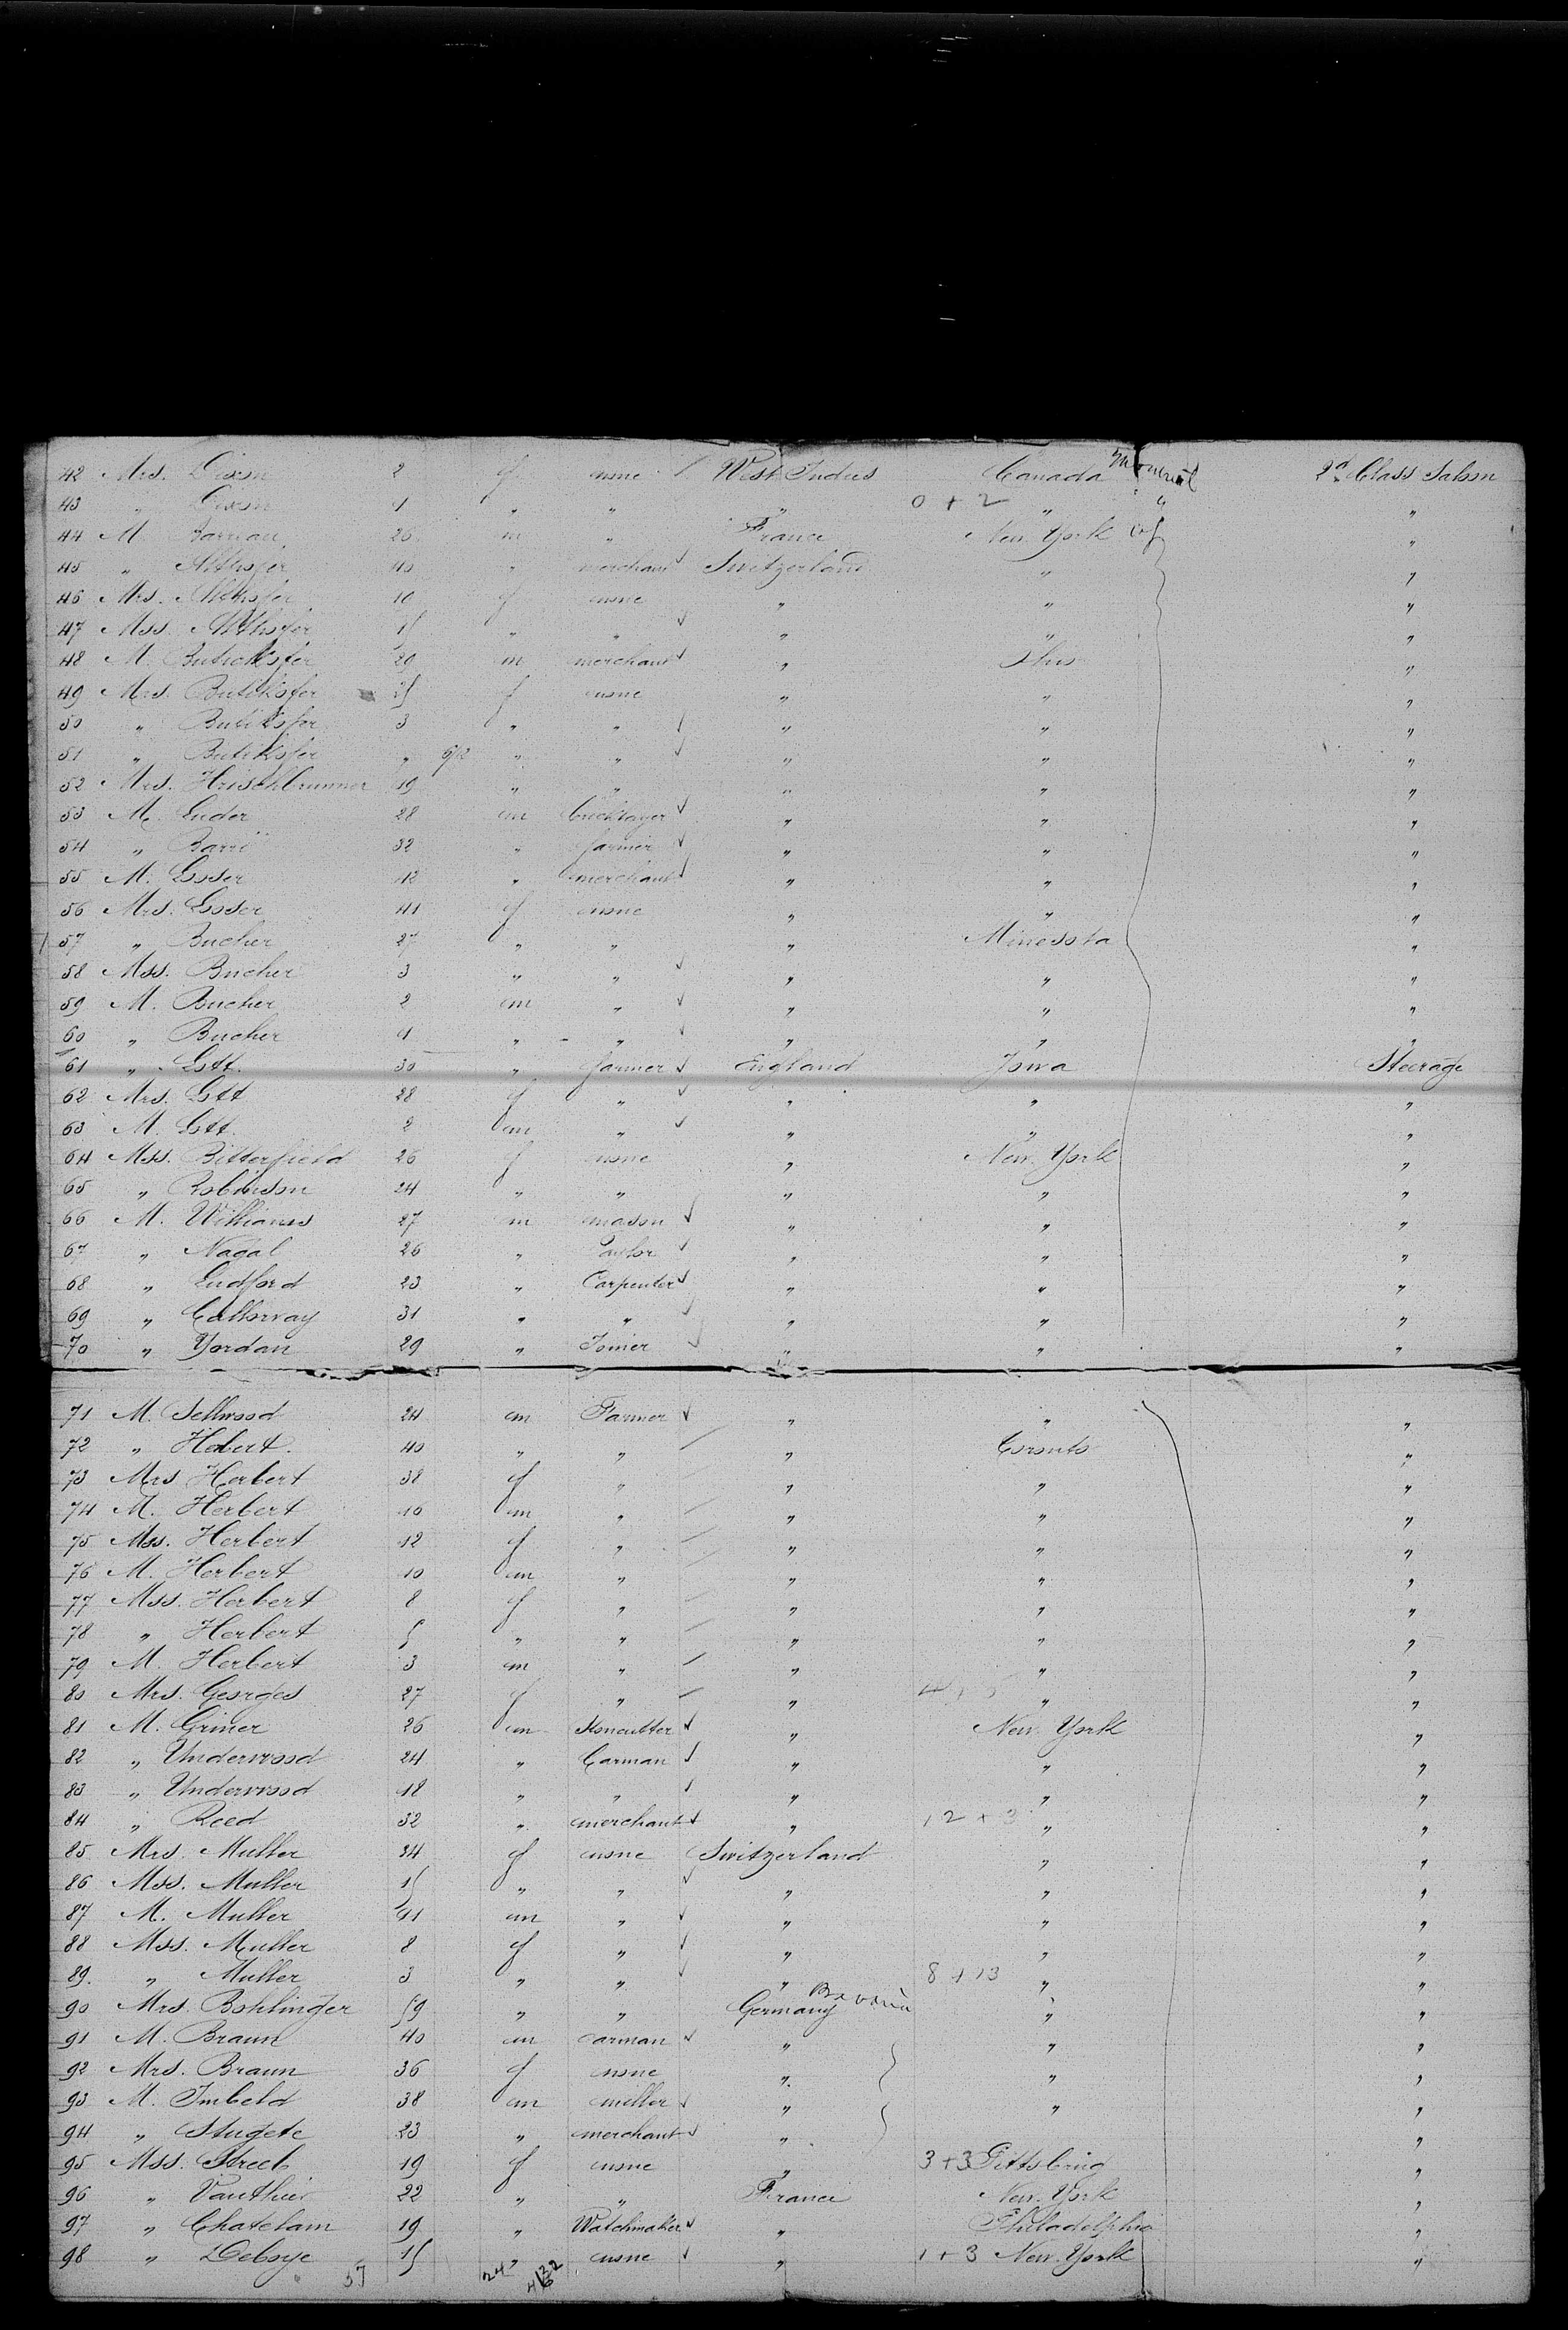 42 Mrs. Dixon 2 f none West Indies Canada Montreal 2d Class Saloon
43 " Dixon 1 " " " 0 + 2 " " "
44 M. 26 m " France New York "
45 " Althofer 40 " merchant Switzerland " "
46 Mrs. Althofer 40 f none " " "
47 Mss. Althofer 15 " " " " "
48 M. Butikofer 29 m merchant " Ohio "
49 Mrs. Butikofer 25 f none " " "
50 " Butikofer 3 " " " " "
51 " Butikofer " 6/12 " " " " "
52 Mrs. Hrischbrunner 19 " " " " "
53 M. Luder 28 m bricklayer " " "
54 " Barri 32 " farmer " " "
55 M. Losser 42 " merchant " " "
56 Mrs. Losser 41 f none " " "
57 " Bucher 27 " " " Minessota "
58 Mss. Bucher 3 " " " " "
59 M. Bucher 2 m " " " "
60 " Bucher 1 " " " " "
61 " Lott. 30 " farmer England Jowa Steerage
62 Mrs. Lott 28 f " " " "
63 M. Lott. 2 m " " " "
64 Mss. Bitterfield 26 f none " New York "
65 " Robinson 24 " " " " "
66 M. Williams 27 m mason " " "
67 " Nagal 26 " Taylor " " "
68 " Ludford 23 " Carpenter " " "
69 " Calloway 31 " " " " "
70 " Yordan 29 " Joiner " " "
71 M. Sellwood 24 m Farmer " " "
72 " Hebert. 40 " " " Toronto "
73 Mrs Herbert 38 f " " " "
74 M. Herbert 10 m " " " "
75 Mss. Herbert 12 f " " " "
76 M. Herbert 10 m " " " "
77 Mss. Herbert 8 f " " " "
78 " Herbert 5 " " " " "
79 M. Herbert 3 m " " " "
80 Mrs. Georges 27 f " " " "
81 M. Griner 26 m Stoncutter " New York "
82 " Underwood 24 " Carman " " "
83 " Underwood 18 " " " " "
84 " Reed 32 " merchant " 12 + 3 " "
85 Mrs. Muller 34 f none Switzerland " "
86 Mss. Muller 15 " " " " "
87 M. Muller 11 m " " " "
88 Mss. Muller 8 f " " " "
89. " Muller 3 " " " 8 + 13 " "
90 Mrs. Bohlinger 59 " " Germany Bavaria " "
91 M. Braun 40 m carman " " "
92 Mrs. Braun 36 f none " " "
93 M. Imbeld 38 m miller " " "
94 " Stugete 23 " merchant " "
95 Mss. Streeb 19 f none " 3 + 3 Pittsbrug "
96 " Vauthier 22 " " France New York "
97 " Chatelain 19 " Watchmaker " Philadelphia "
98 " Deboye 15 " none " 1 + 3 New York "
57 24